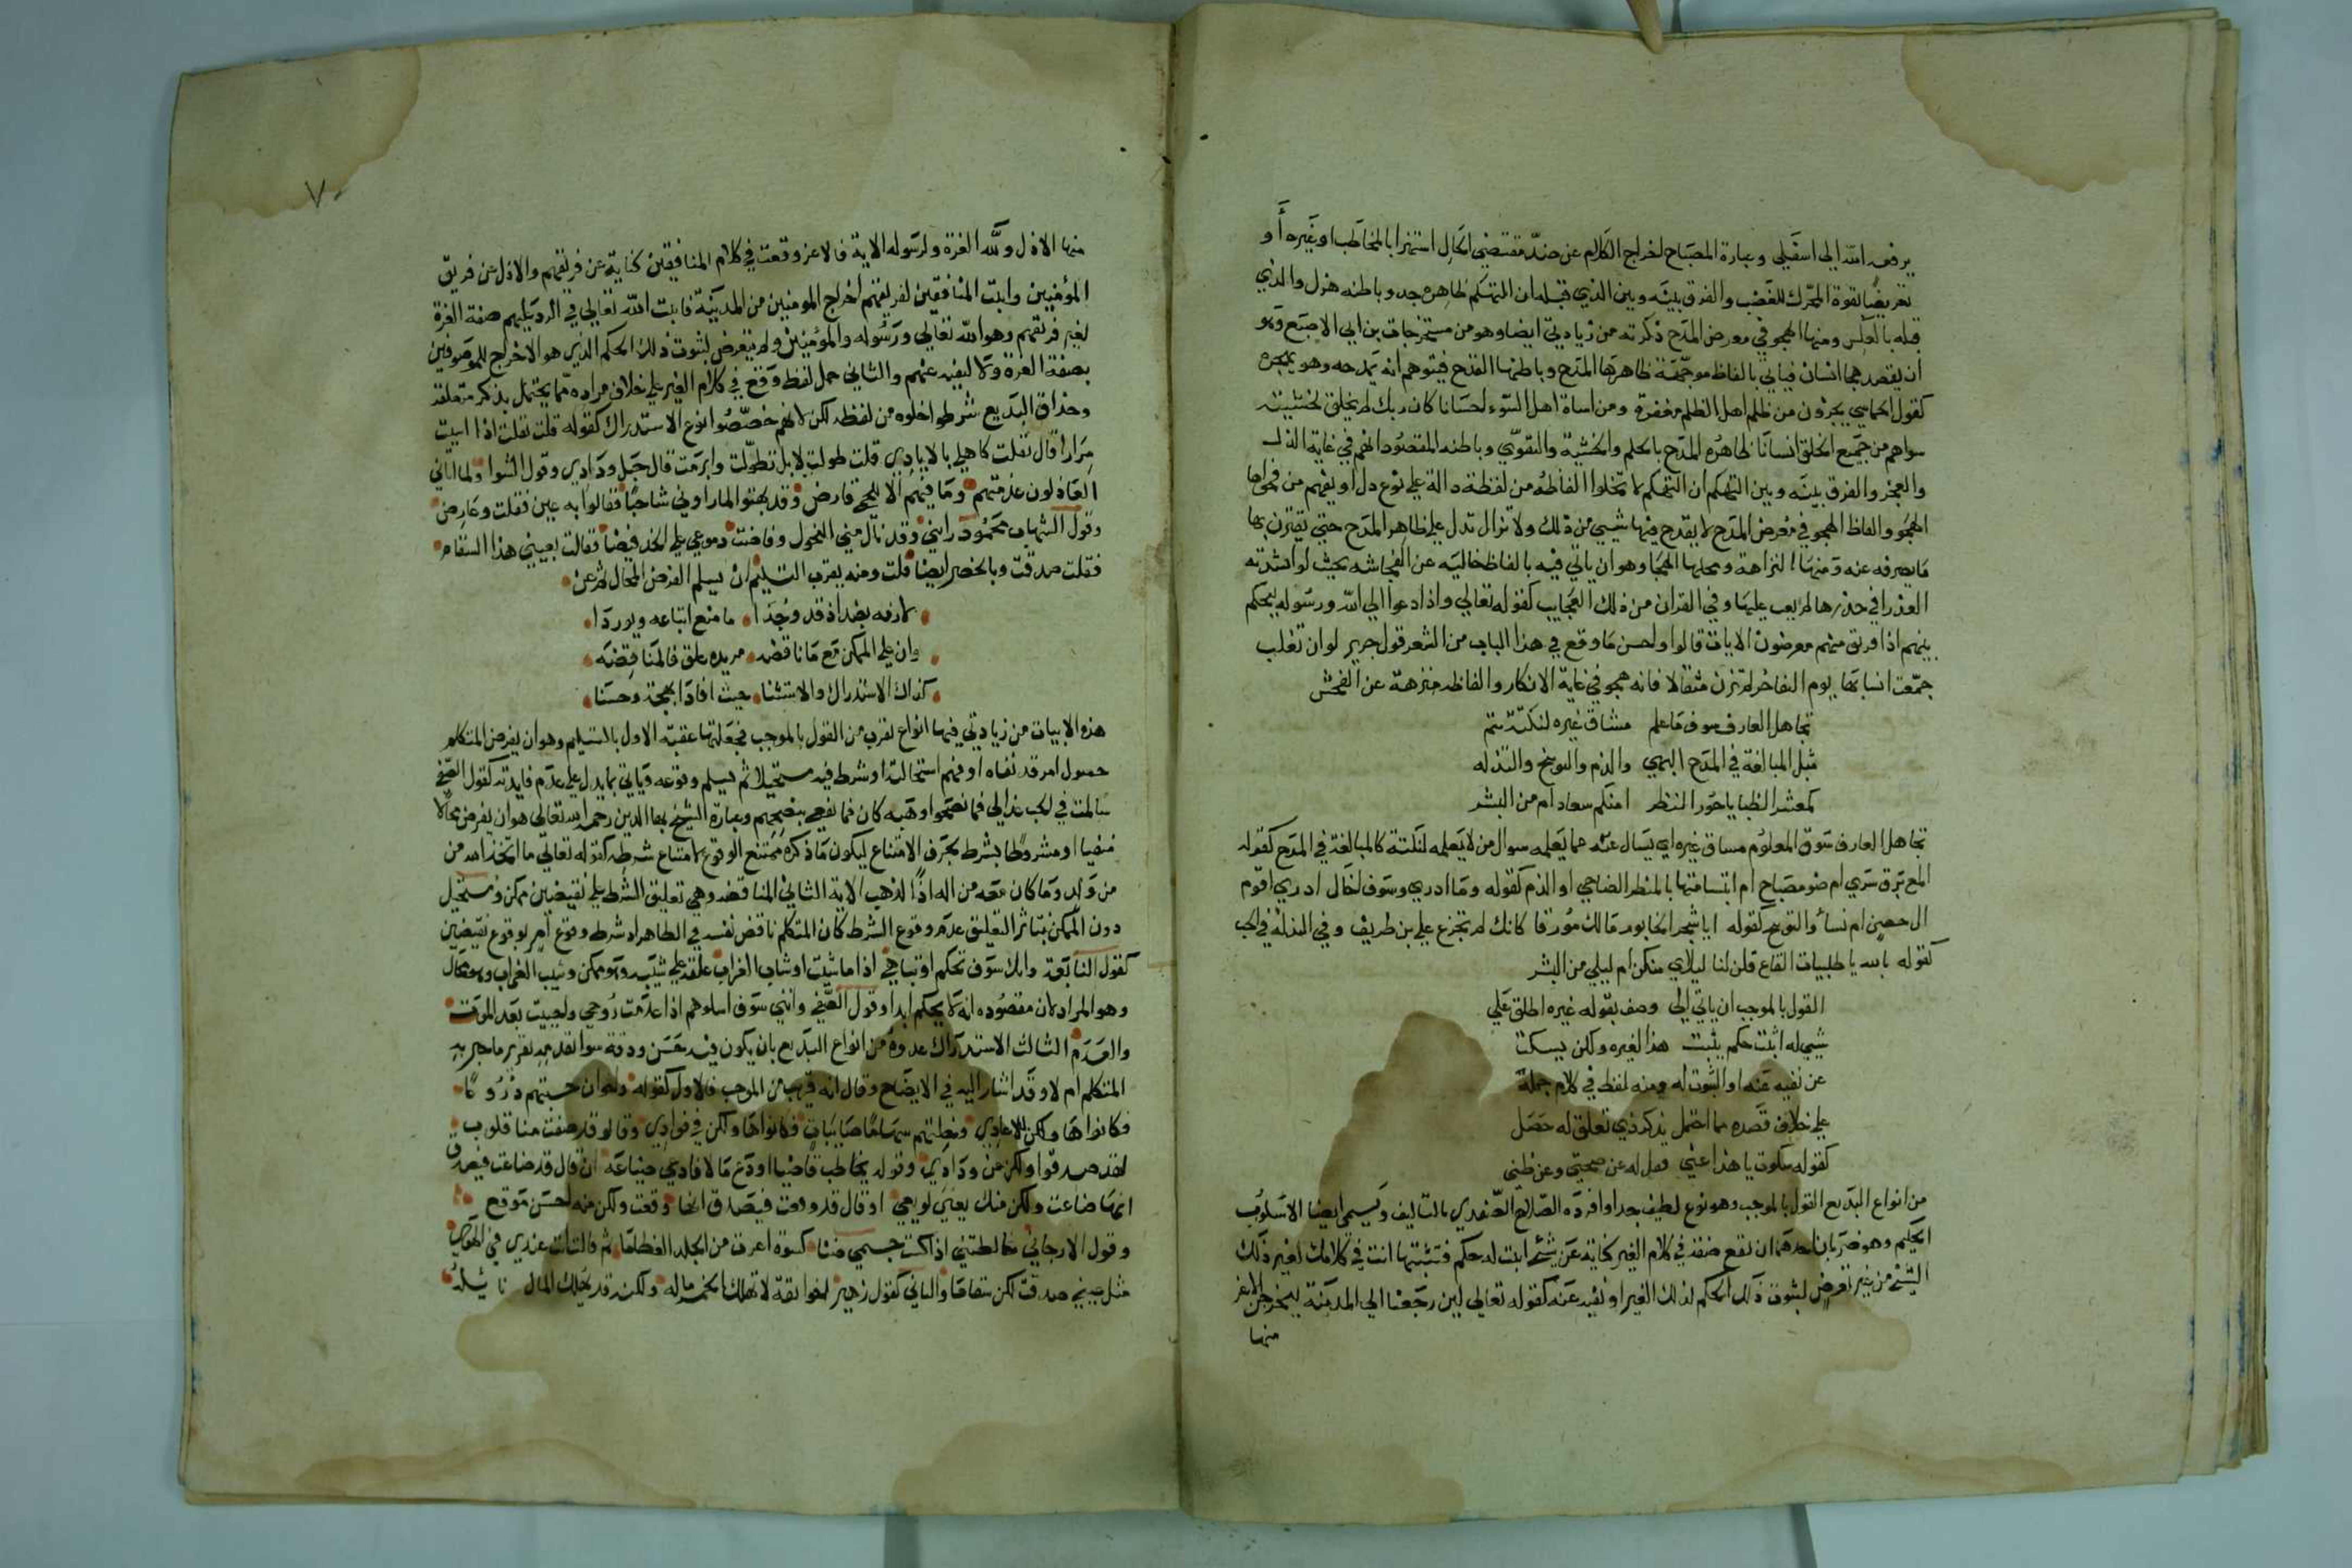 يرفعه الله الى اسفل وعبارة المصباح اخراج الكلام عن ضد مقتضى الحال استهزا بالمخاطب او بغيره أو
تعريضا لقوة المحرك للغضب والفرق بينه وبين الذي قبله ان التهكم ظاهره جد وباطنه هزل والذي
قبله بالعكس ومنها الهجو في معرض المدح ذكرته من زيادتي ايضا وهو من مستخرجات بن ابي الاصبع وهو
ان يقصد هجا انسان فياتي بالفاظ موجهة ظاهرها المدح وباطنها القدح فيتوهم انه يمدحه وهو يهجوه
كقول الحماسي يجزون من ظلم اهل الظلم مغفرة ومن اساة اهل السوء احسانا كان ربك لم يخلق لخشيته
سواهم من جميع الخلق انسانا ظاهره المدح بالحلم والخشية والتقوى وباطنه المقصود انهم في غاية الذل
والعجز والفرق بينه وبين التهكم ان التهكم لا تخلوا الفاظه من لفظة دالة على نوع ذل او يفهم من فحواها
الهجو والفاظ الهجو في معرض المدح لا يقدح فيها شيي من ذلك ولا تزال تدل على ظاهر المدح حتى يقترن بها
ما يصرفه عنه ومنها النزاهة ومحلها الهجا وهو ان ياتي فيه بالفاظ خالية عن الفحاشه بحيث لو انشدته
العذرا في خدرها لم يعب عليها وفي القران من ذلك العجايب كقوله تعالى واذا دعوا الى الله ورسوله ليحكم
بينهم اذا فريق منهم معرضون الايات قالوا واحسن ما وقع في هذا الباب من الشعر قول جرير لو ان تغلب
جمعت انسابها يوم التفاخر لم تزن مثقالا فانه هجو في غاية الانكار والفاظه منزهة عن الفحش
تجاهل العارف سوق ما علم مساق غيره لنكتة تتم
مثل المبالغة في المدح البهي والذم والتوبيخ والتدله
كمعشر الظبا يا حور النظر امنكم سعاد ام من البشر
تجاهل العارف سوق المعلوم مساق غيره اي يسال عنه عما يعلمه سوال من لا يعلمه لنكتة كالمبالغة في المدح كقوله
المع برق سري ام ضو مصباح ام ابتسامتها بالمنظر الضاحي او الذم كقوله وما ادري وسوف اخال ادري اقوم
ال حصن ام نسأ والتوبيخ كقوله ايا شجر الخابور مالك مورقا كانك لم تجزع على بن طريف وفي التدله في الحب
كقوله بالله يا ظبيات القاع قلن لنا ليلاي منكن ام ليلى من البشر
القول بالموجب ان ياتي الي وصف بقوله غيره اطلق على
شيي له اثبت حكم يثبت هذا لغيره ولكن يسكت
عن نفيه عنه او الثبوت له ومنه لفظ في كلام جمله
على خلاف قصده مما احتمل بذكر ذي تعلق له حصل
كقوله سلوت يا هذا عني فقل له عن صحتي وعن ظني
من انواع البديع القول بالموجب وهو نوع لطيف جدا وافرده الصلاح الصفدي بالتاليف ويسمى ايضا الاسلوب
الحكيم وهو ضربان احدهما ان تقع صفة في كلام الغير كناية عن شئ اثبت له حكم فتثبتها انت في كلامك لغير ذلك
الشئ من غير تعرض لثبوت ذلك الحكم لذلك الغير او نفيه عنه كقوله تعالى لين رجعنا الى المدينة ليخرجن الاعز
منها
٧٠
منها الاذل ولله العزة ولرسوله الاية فالاعز وقعت في كلام المنافقين كناية عن فريقهم والاذل عن فريق
المؤمنين واثبت المنافقين لفريقهم اخراج المومنين من المدينة فاثبت الله تعالى في الرد عليهم صفة العزة
لغير فريقهم وهو الله تعالى ورسوله والمؤمنين ولم يتعرض لثبوت ذلك الحكم الذي هو الاخراج للموصوفين
بصفة العزة ولا لنفيه عنهم والثاني حمل لفظ وقع في كلام الغير على خلاف مراده مما يحتمل بذكر متعلقه
وحذاق البديع شرطوا خلوه من لفظه لكن لانهم خصصوا نوع الاستدراك كقوله قلت ثقلت اذا اتيت
مرارا قال ثقلت كاهلي بالايادي قلت طولت لا بل تطولت وابرمت قال حبل ودادي وقول الشوا ولما اتاني
العاذلون عدمتهم وما فيهم الا للحمي قارض وقد بهتوا لما راوني شاحبا فقالوا به عين فقلت وعارض
وقول الشهاب محمود راتني وقد نال مني النحول وفاضت دموعي على الخد فيضا فقالت بعيني هذا السقام
فقلت صدقت وبالخصر ايضا قلت ومنه يقرب التسليم ان يسلم الفرض المحال ثم عن
لازمه بعد اذ قد وجدا ما منع اتباعه ويوردا
وان على الممكن مع ما ناقضه مريده علق فالمناقضه
كذاك الاستدراك والاستثنا حيث افادا بهجة وحسنا
هذه الابيات من زيادتي فيها انواع تقرب من القول بالموجب فجعلتها عقبه الاول بالتسليم وهو ان يفرض المتكلم
حصول امر قد نفاه او فهم استحالته او شرط فيه مستحيلا ثم يسلم وقوعه وياتي بما يدل على عدم فايدته كقول الصفي
سالمت في الحب عذالي فما نصحوا وهبه كان فما نفعي بنصحهم وعبارة الشيخ بها الدين رحمه الله تعالى هو ان يفرض محالا
منفيا او مشروطا بشرط بحرف الامتناع ليكون ما ذكره ممتنع الوقوع لامتناع شرطه كقوله تعالى ما اتخذ الله من
من ولد وما كان معه من اله اذا لذهب الاية الثاني المناقضه وهي تعليق الشرط على نقيضين ممكن ومستحيل
دون الممكن بتاثر التعليق عدم وقوع الشرط كان المتكلم ناقض نفسه في الظاهر اذ شرط وقوع امر بوقوع نقيضين
كقول النابغة وانك سوف تحكم او تباهي اذا ما شبت او شاب الغراب علقه على شيبه وهو ممكن وشيب الغراب وهو محال
وهو المراد لان مقصوده انه لا يحكم ابدا وقول الصفي وانني سوف اسلوهم اذا عدمت روحي واحييت بعد الموت
والعدم الثالث الاستدراك عدوه من انواع البديع بان يكون فيه حسن ودقة سوا تقدمه تقرير ما جر به
المتكلم ام لا وقد اشار اليه في الايضاح وقال انه قريب من الموجب فالاول كقوله واخوان حسبتهم دروعا
فكانوها ولكن للاعادي وخلتهم سهاما صايبات فكانوها ولكن في فوادي وقالو قد صفت منا قلوب
لقد صدقوا ولكن عن ودادي وقوله يخاطب قاضيا اودع مالا فادعي ضياعه ان قال قد ضاعت فيصدق
انها ضاعت ولكن منك يعني لو يعي او قال قد وقعت فيصدق انها وقعت ولكن منه احسن موقع
وقول الارجاني غالطتني اذ كست جسمي ضنا كسوة اعرت من الجلد العظاما ثم قالت انت عندي في الهوى
مثل عيني صدقت لكن سقاما والثاني كقول زهير اخو ثقة لا تهلك الخمر ماله ولكنه قد يهلك المال نايله